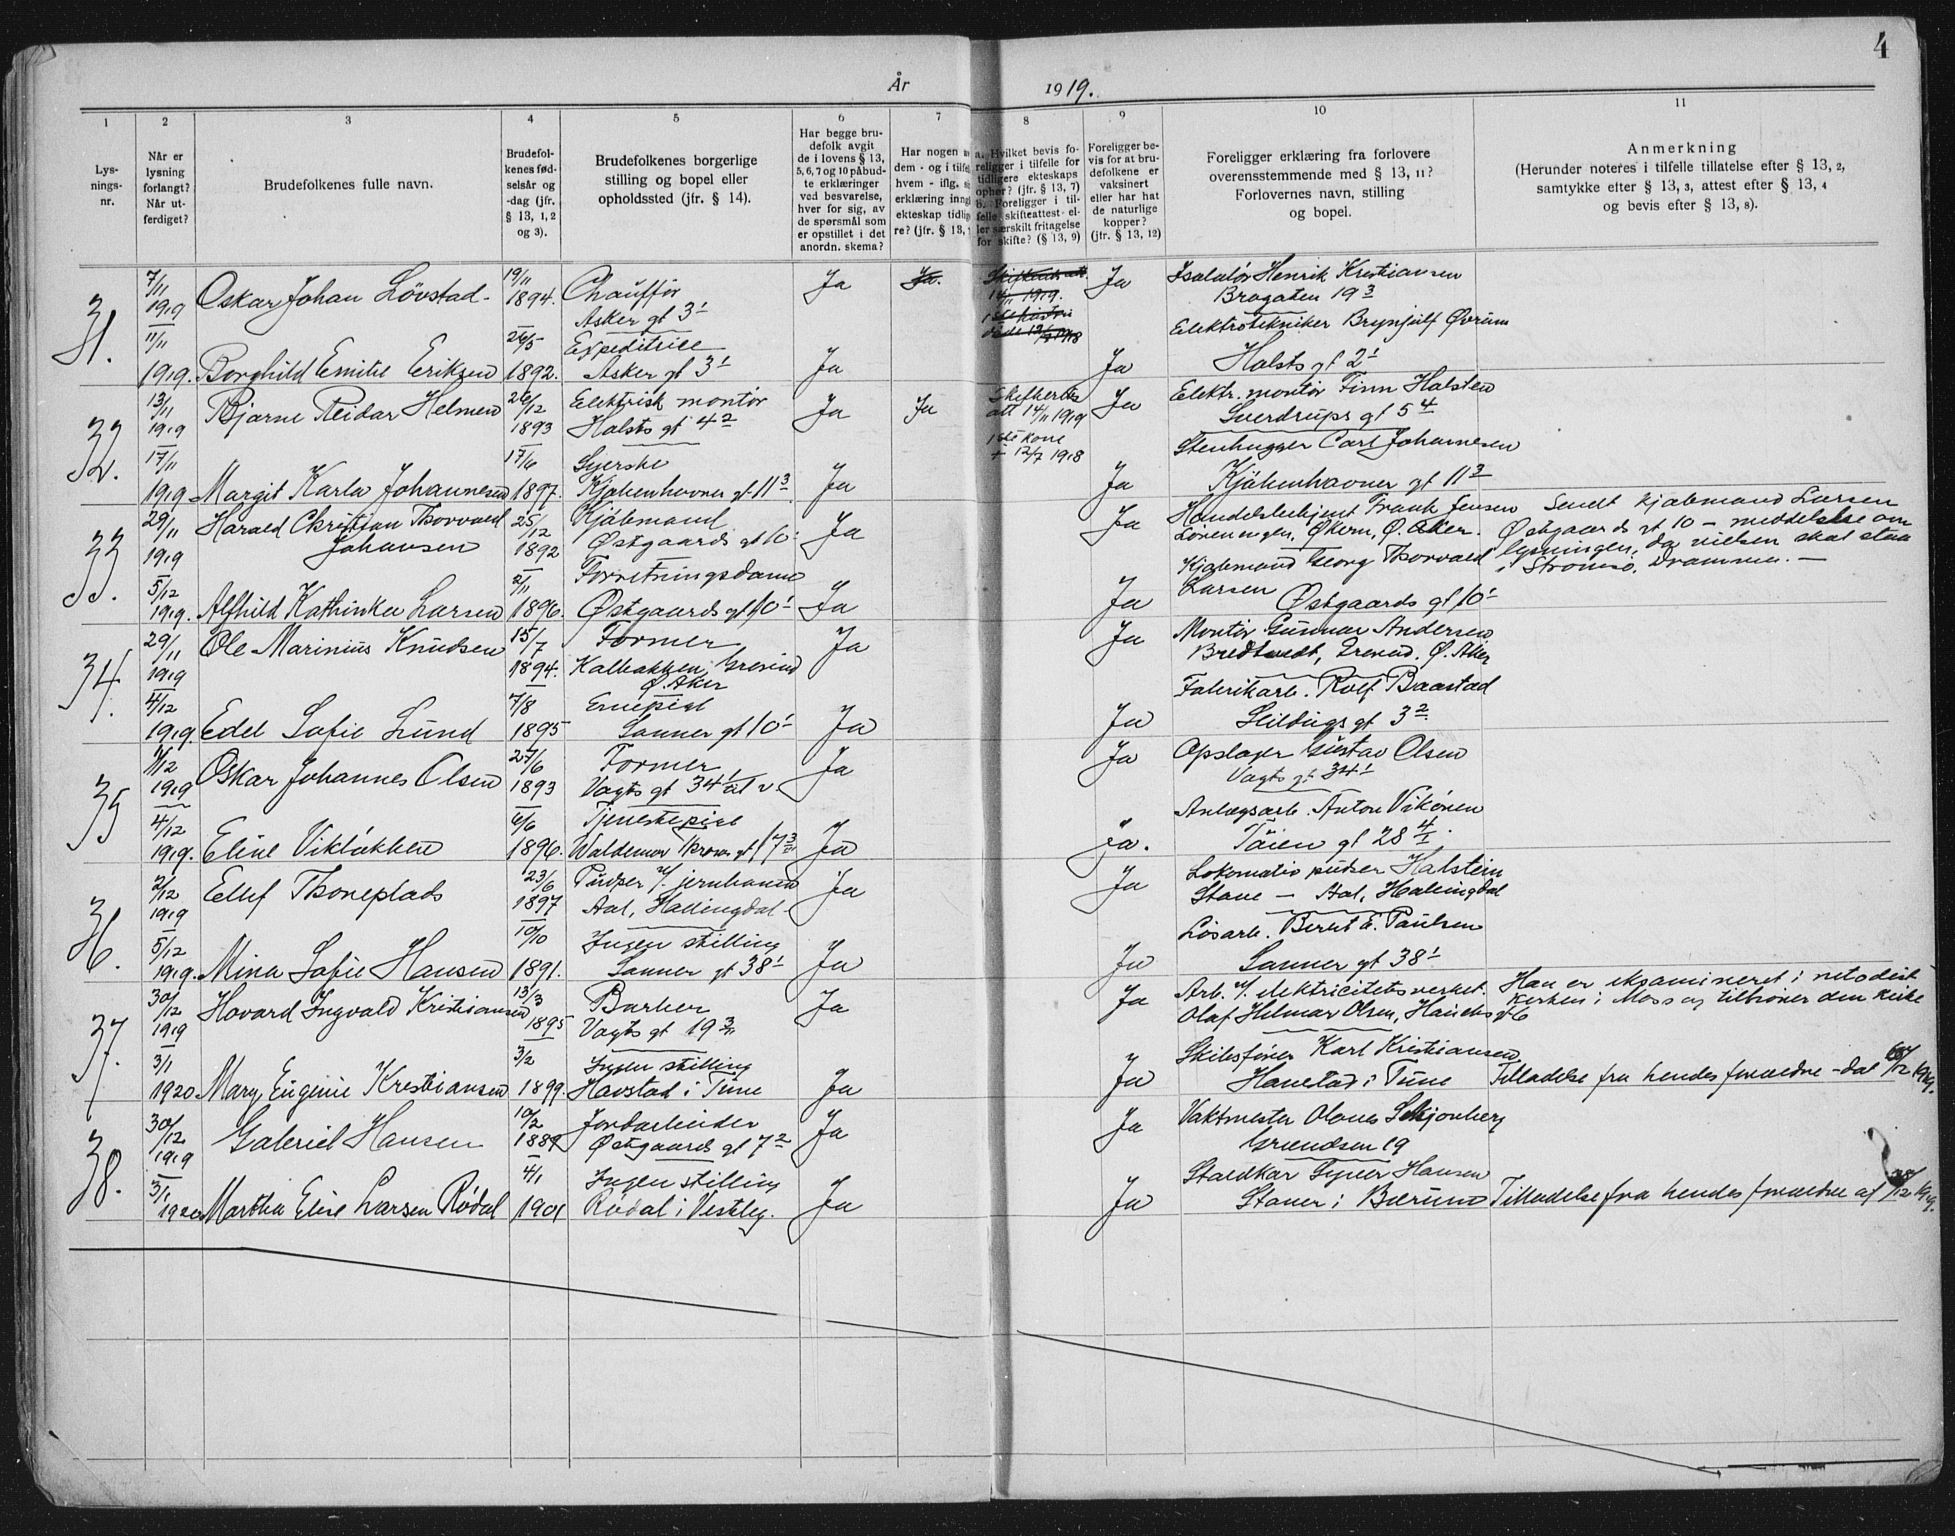 4
År 1919.
1 2 3 4 5 6 7 8 9 10 11
Lys-
nings-
nr.
Når er
lysning
forlangt?
Når ut-
ferdiget?
Brudefolkenes fulle navn.
Brudefol-
kenes fød-
selsår og
-dag (jfr.
§ 13, 1, 2
og 3).
Brudefolkenes borgerlige
stilling og bopel eller
opholdssted (jfr. § 14).
Har begge bru-
defolk avgit
de i lovens § 13,
5, 6, 7 og 10 påbud-
te erklæringer
ved besvarelse,
hver for sig, av
de spørsmål som
er opstillet i det
anordn. skema?
Har nogen
dem - og i tilfe
hvem - iflg.
erklæring inng
ekteskap tidlig
re? (jfr. § 13,
a. Hvilket bevis fo-
religger i tilfelle for
tidligere ekteskaps
ophør? (jfr. § 13, 7)
b. Foreligger i til-
felle skifteattest el-
ler særskilt fritagelse
for skifte? (§ 13, 9)
Foreligger be-
vis for at bru-
defolkene er
vaksinert
eller har hat
de naturlige
kopper?
(jfr. § 13, 12)
Foreligger erklæring fra forlovere
overensstemmende med § 13, 11?
Forlovernes navn, stilling
og bopel.
Anmerkning
(Herunder noteres i tilfelle tillatelse efter § 13, 2,
samtykke efter § 13, 3, attest efter § 13, 4
og bevis efter § 13, 8).
31.
7/11 1919
11/11 1919.
Oskar Johan Lövstad
19/11 1894.
Chauffør
Asker gt 3¹
Ja
Ja.
Ja
Henrik Kristiansen
19³
Borghild Emilie Eriksen
26/5 1892.
Expeditrice
Asker gt 3¹
Ja
Ja
Elektrotekniker Brynjulf Øvrum
Halsts gt 2¹
32.
13/11 1919
17/11 1919
Bjarne Reidar Helmen
26/12 1893
Elektrisk montör
Halsts gt 4²
Ja
Ja
att 14/11 1919
1ste kone
+ 12/7 1918
Ja
Elektr. montör Finn Halsten
Sverdrups gt 5⁴
Margit Karla Johannesen
17/6 1897.
Syerske
Kjøbenhavner gt 11³
Ja
Ja
Stenhugger Carl Johannesen
Kjøbenhavner gt 11³
33.
29/11 1919
5/12 1919.
Harald Christian Thorvald
Johansen
25/12 1892
Kjøbmand
Østgaards gt 10
Ja
Ja
Handelsbetjent Frank Jensen
Løreningen, Økern, Ø. Aker.
Sendt kjøbmand Larsen
Østgaards gt 10 – meddelelse om
lysningen, da vielsen skal staa
i Strømsö, Drammen. –
Alfhild Kathinka Larsen
2/11 1896.
Forretningsdame
Østgaards gt 10¹
Ja
Ja
Kjøbmand Georg Thorvald
Larsen
Østgaards gt 10¹
34.
29/11 1919
4/12 1919.
Ole Marinius Knudsen
15/7 1894.
Former
Kalbakken, Grorud
Ø. Aker
Ja
Ja
Montör Gunnar Andersen
Bredtvedt, Grorud. Ø. Aker
Edel Sofie Lund
7/8 1895
Sanner gt 10¹
Ja
Ja
Fabrikarb. Rolf Baastad
gt 3²
35
1/12 1919
4/12 1919.
Oskar Johannes Olsen
27/6 1893
Former
Vogts gt 34¹
Ja
Ja
Opslager Gustav Olsen
Vogts gt 34¹
Eline Viklökken
6/6 1896.
Tjenestepike
Waldemar Thranes gt 17³
Ja
Ja.
Anlægsarb. Anton
Töien gt 28
36.
2/12 1919
5/12 1919.
Ellef Thoneplads
23/6 1897
Pudser v/ jernbanen
Aal, Hallingdal
Ja
Ja
Lokomotiv pudser Halstein
Stave – Aal, Hallingdal
Mina Sofie Hansen
10/10 1891.
Ingen stilling
Sanner gt 38¹
Ja
Ja
Løsarb. Bernt E. Paulsen
Sanner gt 38¹
37.
30/12 1919
3/1 1920
Hovard Ingvald Kristiansen
13/3 1895
Barber
Vogts gt 19³
Ja
Ja
Arb. v/ elektricitetsverket.
Olaf Hilmar Olsen, Hauchs gt 6
Han er eksamineret i metodist
kirken i Moss og tilhører den kirke
Mary Eugenie Kristiansen
3/2 1899.
Ingen stilling
Havstad i Tune
Ja
Ja
Skibsfører Karl Kristiansen
Havstad i Tune
Tilladelse fra hendes forældre dat /12 1919.
38.
30/12 1919
3/1 1920
Gabriel Hansen
10/2 1889
Jordarbeider
Østgaards gt 7²
Ja
Ja
Vaktmester Olaus Skjønberg
Grændsen 19
Martha Elise Larsen Rödal
4/1 1901
Ingen stilling
Rödal i Vestby.
Ja
Ja
Staldkar Hansen
i Bærum
Tilladelse fra hendes forældre af /12 1919.